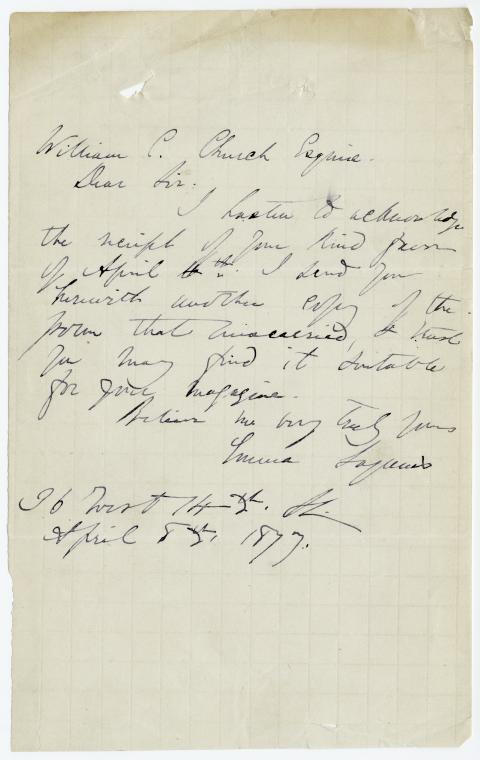 William C. Church Esquire.
Dear Sir:
I hasten to acknowledge
the receipt of your kind favor
of April 4th. I send you
herewith another copy of the
poem that miscarried, & trust
you may find it suitable
for your magazine.
Believe me very truly yours
Emma Lazarus
36 West 14th. St.
April 8th. 1877.